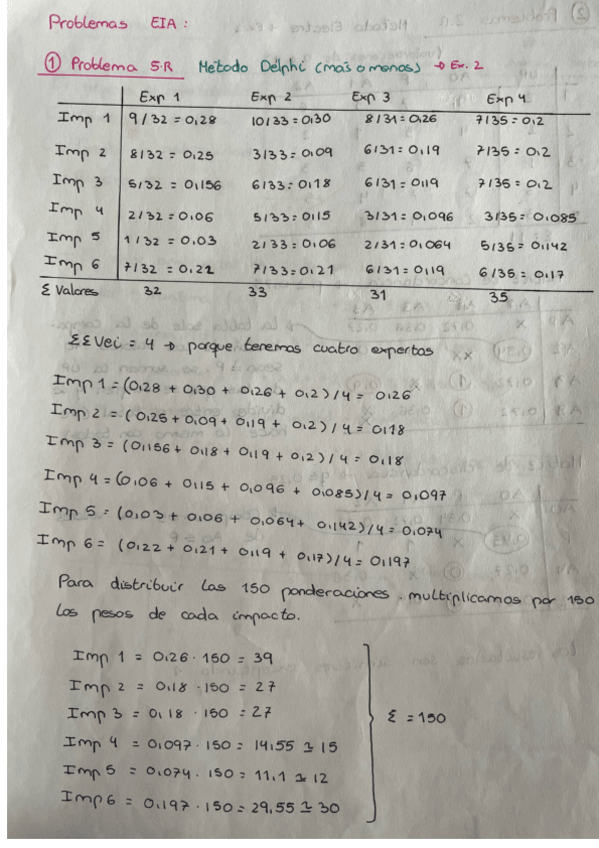 Problemas EIA:
① Problema S.R Método Delphi (más o menos) → Ex. 2
Exp 1 Exp 2 Exp 3 Exp 4
Imp 1 9/32 = 0,28 10/33 = 0,30 8/31 = 0,26 7/35 = 0,2
Imp 2 8/32 = 0,25 3/33 = 0,09 6/31 = 0,19 7/35 = 0,2
Imp 3 5/32 = 0,156 6/33 = 0,18 6/31 = 0,19 7/35 = 0,2
Imp 4 2/32 = 0,06 5/33 = 0,15 3/31 = 0,096 3/35 = 0,085
Imp 5 1/32 = 0,03 2/33 = 0,06 2/31 = 0,064 5/35 = 0,142
Imp 6 7/32 = 0,22 7/33 = 0,21 6/31 = 0,19 6/35 = 0,17
Σ Valores 32 33 31 35
ΣΣVei = 4 → porque tenemos cuatro expertas
Imp 1 = (0,28 + 0,30 + 0,26 + 0,2)/4 = 0,26
Imp 2 = (0,25 + 0,09 + 0,19 + 0,2)/4 = 0,18
Imp 3 = (0,156 + 0,18 + 0,19 + 0,2)/4 = 0,18
Imp 4 = (0,06 + 0,15 + 0,096 + 0,085)/4 = 0,097
Imp 5 = (0,03 + 0,06 + 0,064 + 0,142)/4 = 0,074
Imp 6 = (0,22 + 0,21 + 0,19 + 0,17)/4 = 0,197
Para distribuir las 150 ponderaciones, multiplicamos por 150
los pesos de cada impacto.
Imp 1 = 0,26 · 150 = 39
Imp 2 = 0,18 · 150 = 27
Imp 3 = 0,18 · 150 = 27
Σ = 150
Imp 4 = 0,097 · 150 = 14,55 ≃ 15
Imp 5 = 0,074 · 150 = 11,1 ≃ 12
Imp 6 = 0,197 · 150 = 29,55 ≃ 30